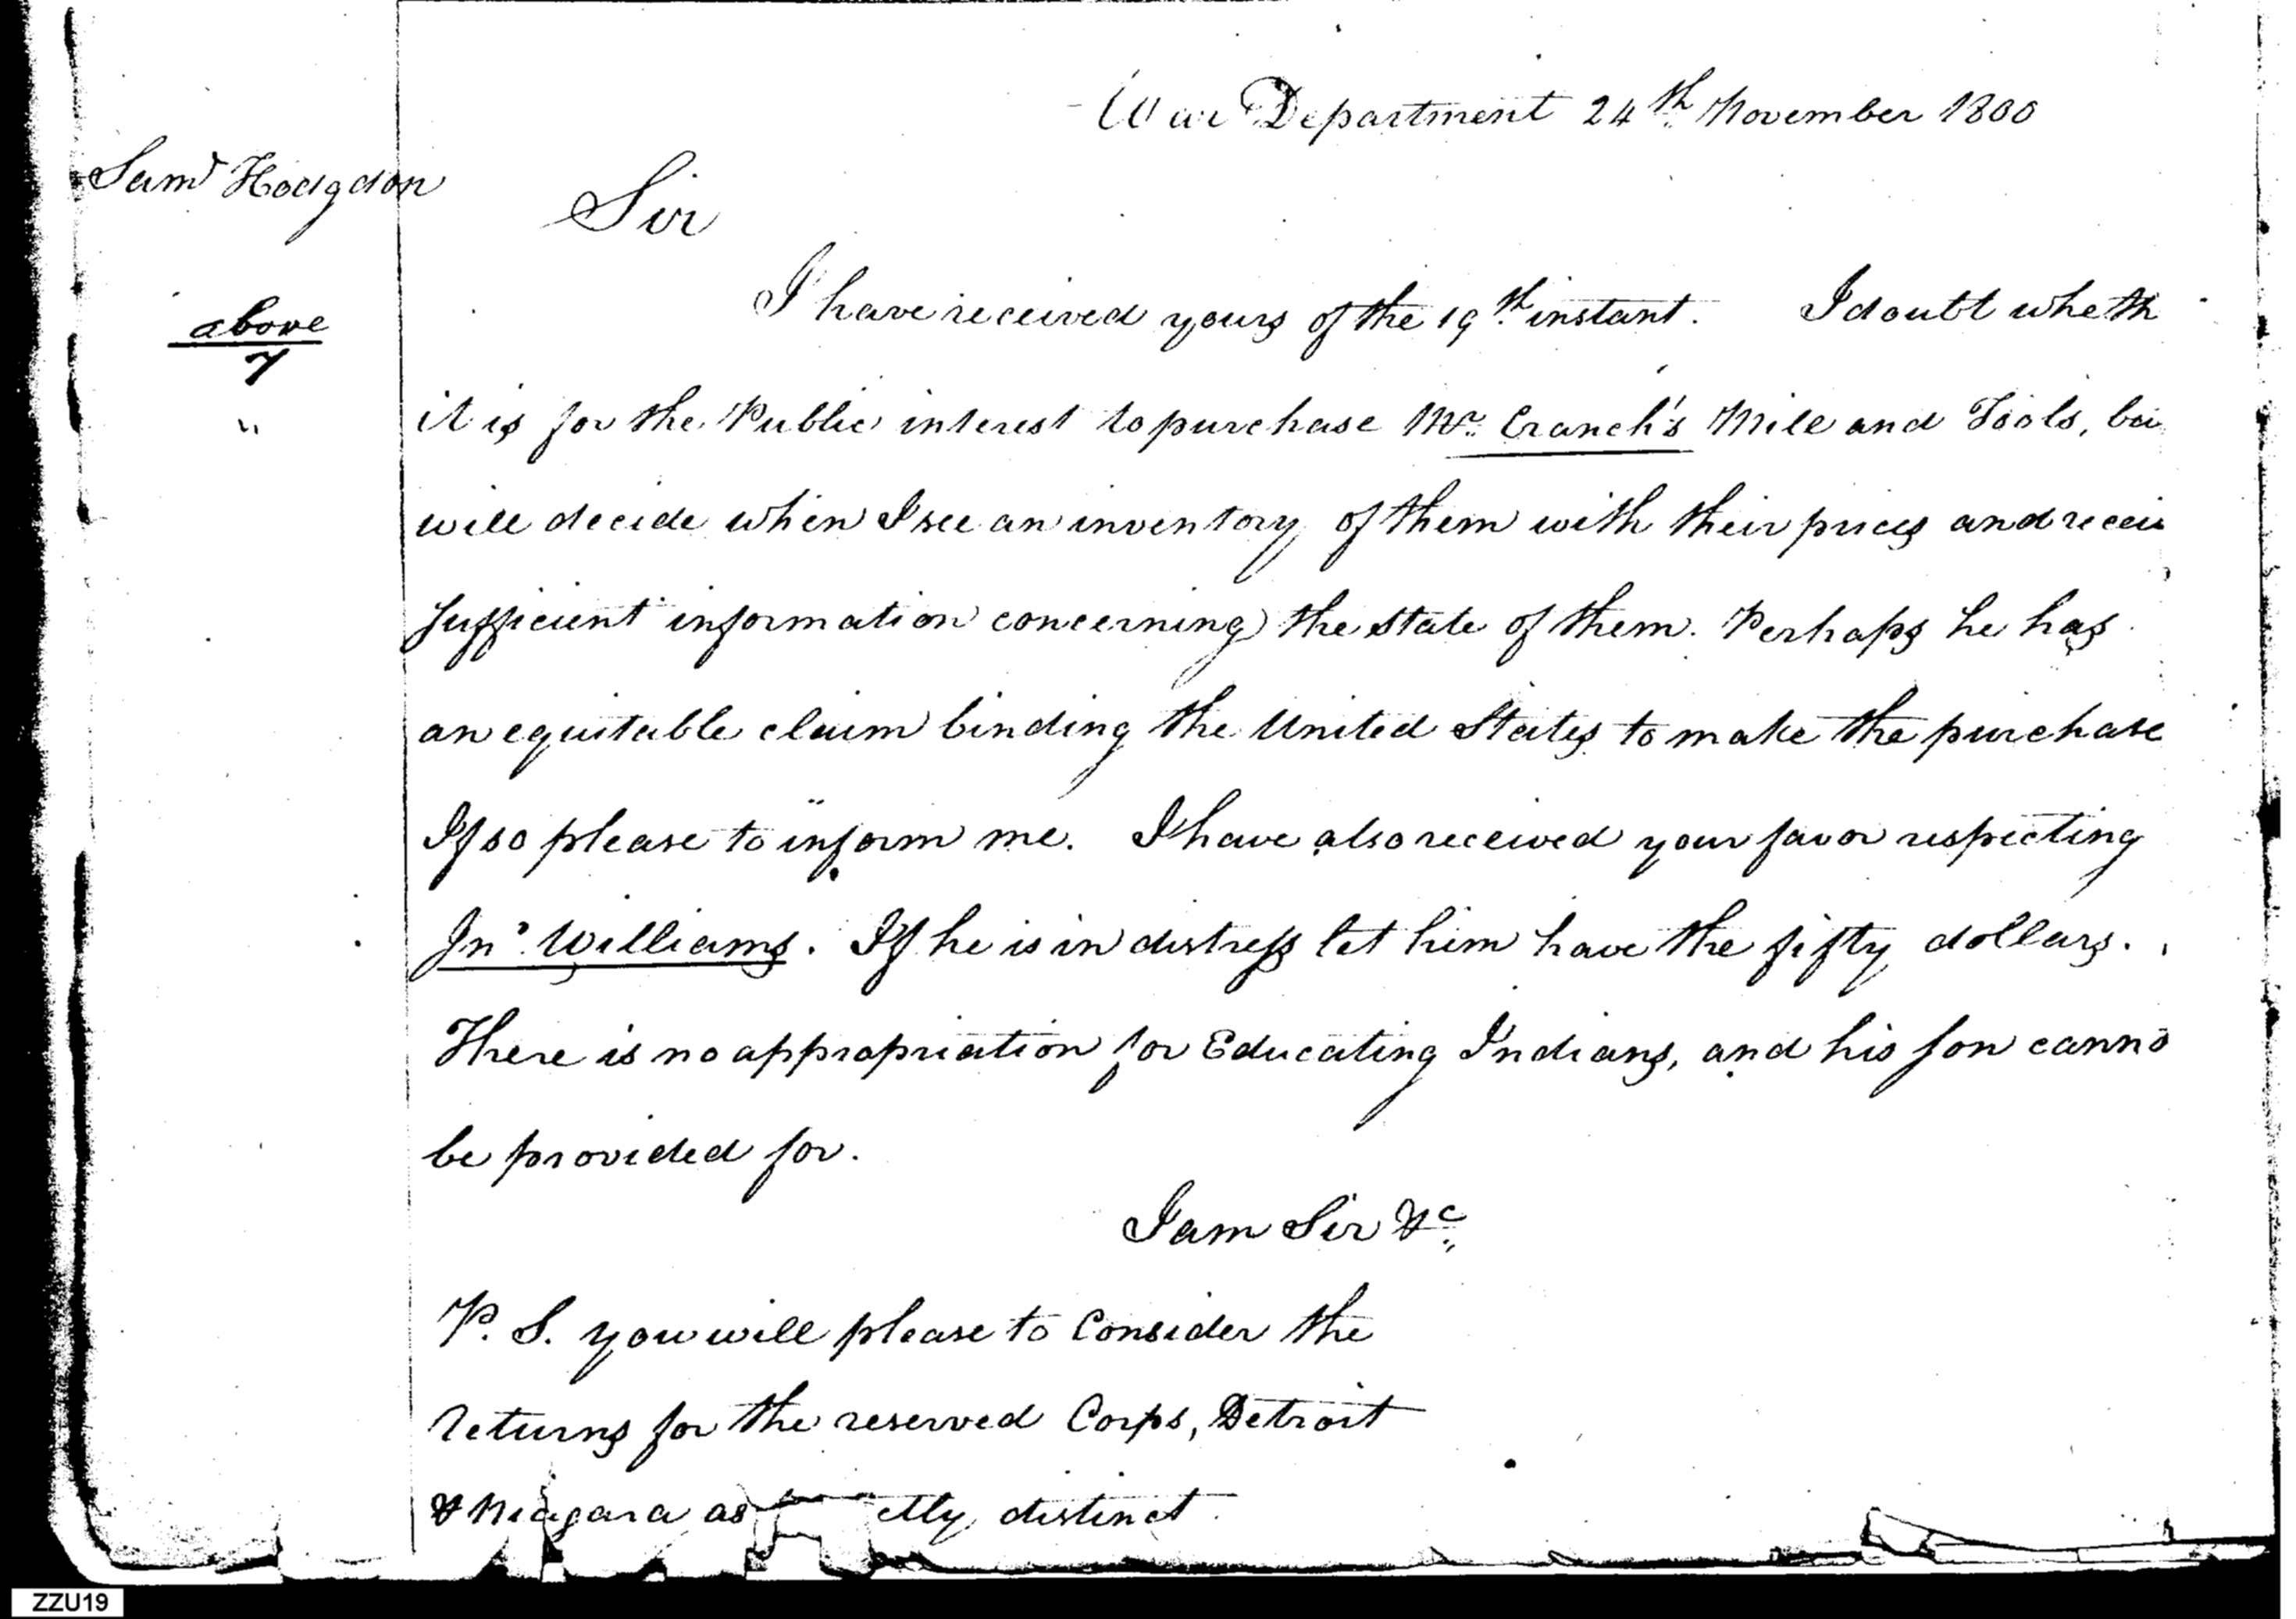 War Department 24th November 1800
Saml Hodgdon
Sir
I have received yours of the 19th instant. I doubt wheth
above
7
"
it is for the Public interest to purchase Mr. Cranch's Mill and Tools, bu
will decide when I see an inventory of them with their prices and recei
sufficient information concerning the state of them. Perhaps he has
an equitable claim binding the United States to make the purchase
If so please to inform me. I have also received your favor respecting
Jno. Williams. If he is in distress let him have the fifty dollars.
There is no appropriation for Educating Indians, and his son canno
be provided for.
I am Sir &c
P. S. you will please to Consider the
returns for the reserved Corps, Detroit
& Niagara as ctly distinct
ZZU19